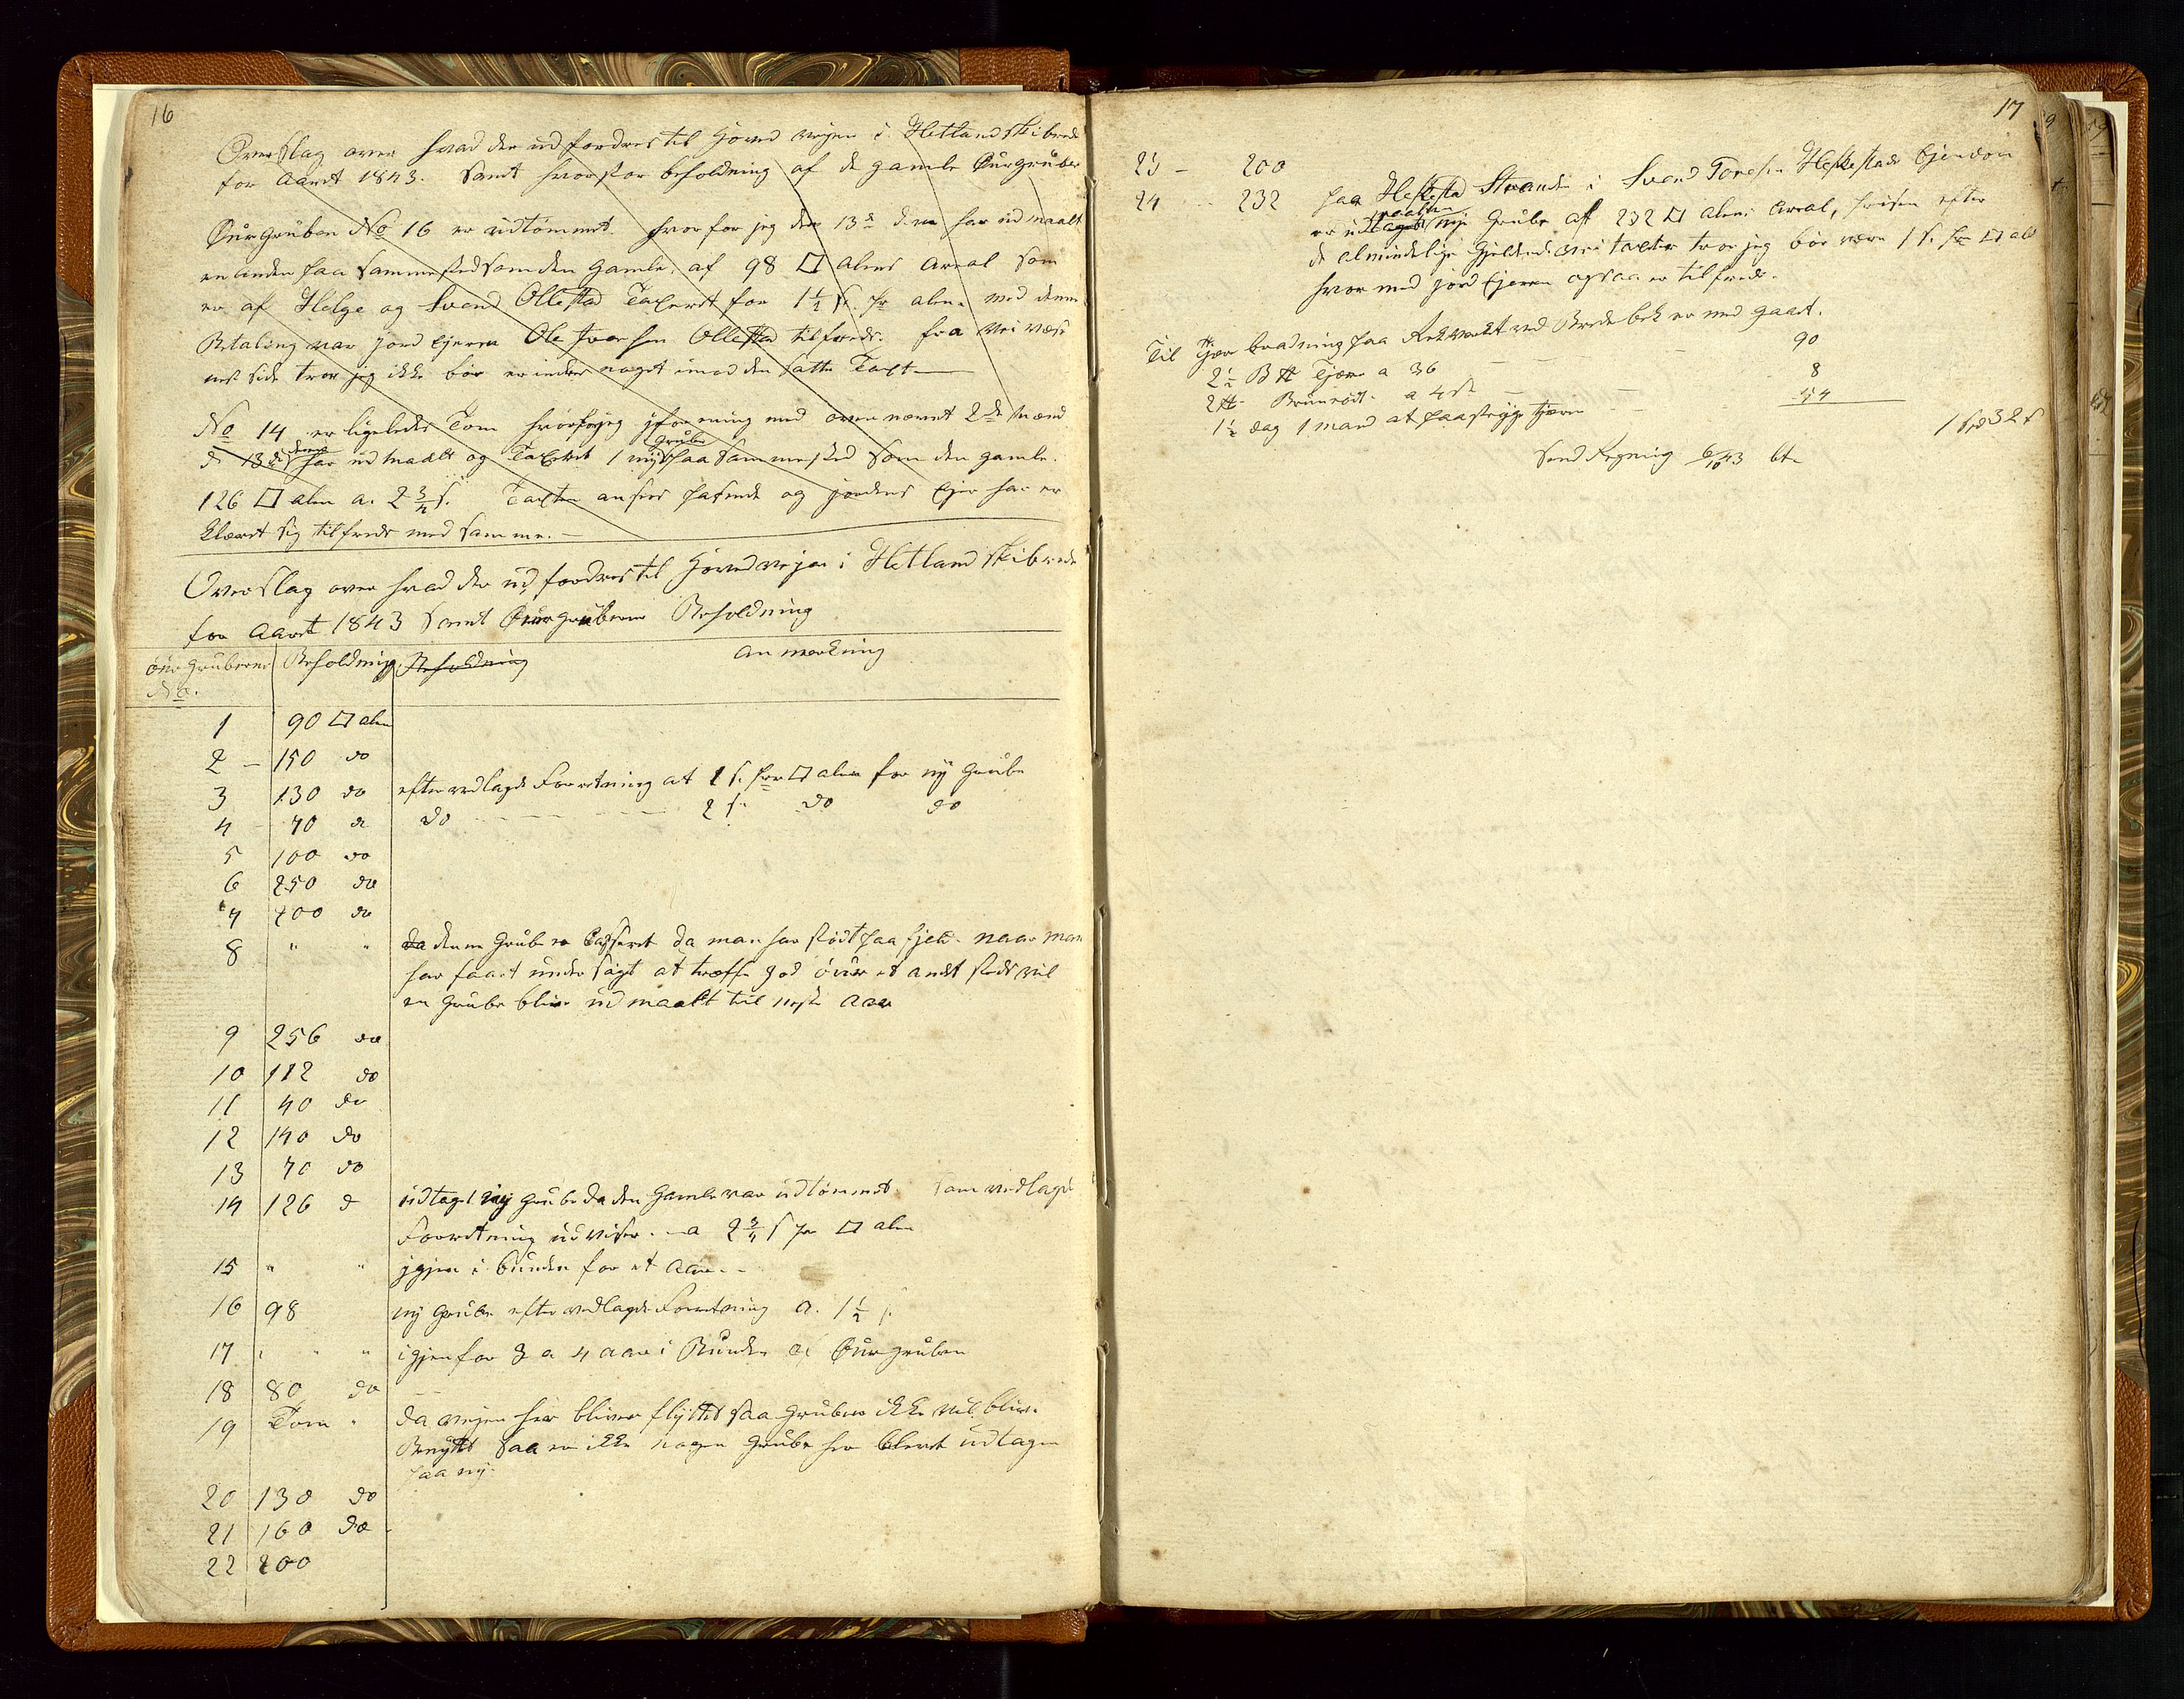 16
Overslag over hvad der udfordres til Hovedvejen i Hetland Skibrede
for Aaret 1843. Samt hvor stor beholdning af de gamle Øurgruber
Øurgruben No 16 er udtømmet. hvorfor jeg den 13de d.m. har udmaalt
en anden paa samme sted som den Gamle, af 98 □ alens Areal som
er af Helge og Svend Ollestad Taxeret for 1½ s. pr alen med denne
Betaling var jord Ejeren Ole Iversen Ollestad tilfreds. fra Vei væse
net side troer jeg ikke bør erindres noget imod den satte Taxt
No 14 er ligeledes Tom hvorfor jeg i forening med ovennævnt 2de Mænd
d 13de dennes har udmaalt og Taxeret 1 ny Grube paa samme sted som den gamle.
126 □ alen a. 2¾ s. Taxten ansees passende og jordens Ejer har er
klæret sig tilfreds med samme. –
Overslag over hvad der udfordres til Hovedvejen i Hetland Skibrede
for Aaret 1843 Samt Øurgrubernes Beholdning
Øurgruberne No. Beholdning Beholdning Anmærkning
1 90 □ alen
2 – 150 do
3 130 do efter vedlagde Forretning at 1 s. pr □ alen for ny Grube
4 70 do do 2 s. do do
5 100 do
6 250 do
7 200 do
8 " " da denne Grube er Casseret da man har stødt paa fjeld. naar man
har faaet undersøgt at træffe god øuur et andet steds vil
en Grube blive udmaalt til neste Aar
9 256 do
10 112 do
11 40 do
12 140 do
13 70 do
14 126 d udtaget ny Grube da den Gamle var udtømmet. som vedlagde
Forretning udviser. a 2¾ s pr □ alen
15 " " igjen i bunden for et Aar. –
16 98 ny Grube efter vedlagde Forretning a. 1½ s.
17 " " " igjen for 3 a 4 aar i Bunden af Øurgruben
18 80 do
19 Tom " da vejen her bliver flyttet saa Gruben ikke vil blive
Benyttet saa er ikke nogen Grube her blevet udtagen
paa ny.
20 130 do
21 160 do
22 200
17
23 – 200
24 232 paa Heskestad Strande i Svend Tores. Heskestads Ejendom
er udtaget maalten nye Grube af 232 □ alens Areal, prisen efter
de almindelige Gjeldende Vei taxter troer jeg bør være 1 s. pr □ alen
hvormed jord Ejeren ogsaa er tilfreds.
Til Tjærebredning paa Rekverket ved Bredebek er med gaaet.
2½ B℔ Tjære a 36 – – – 90
2 ℔ Brunrødt. a 4 s – 8
1½ dag 1 mand at paastryge tjæren 54
1 spd 32 s
Send Regning 6/10 43